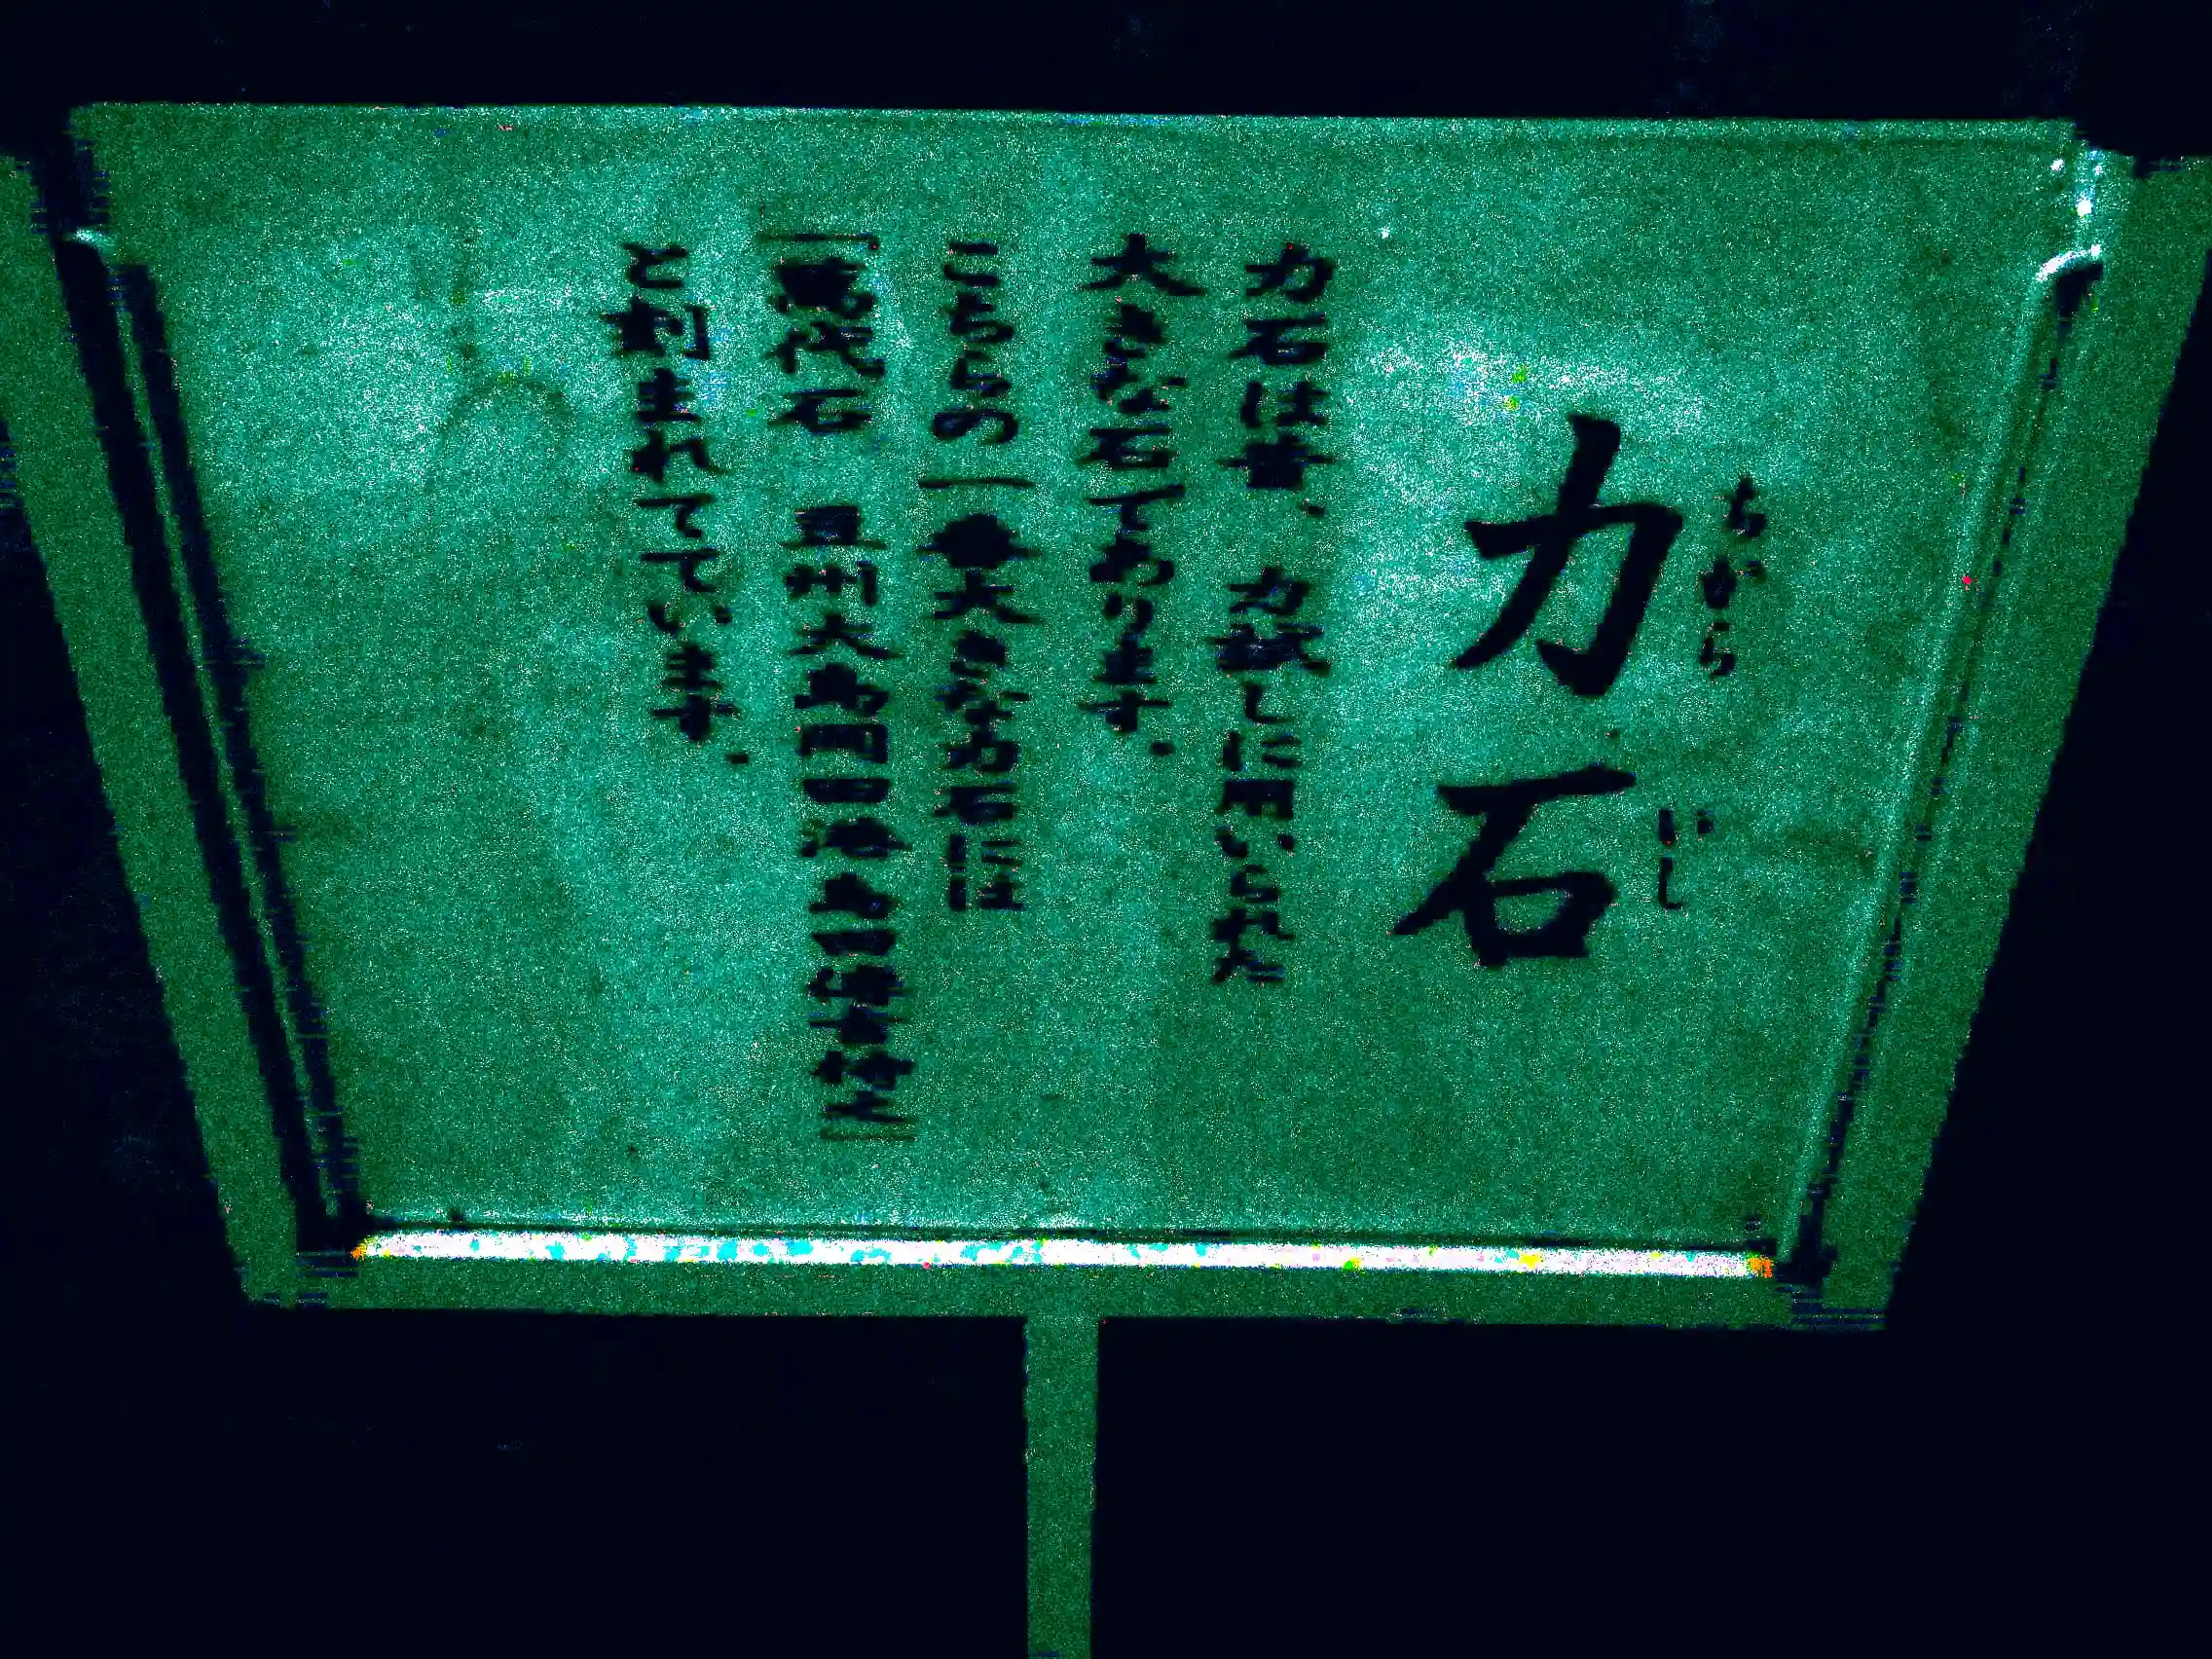 力石
ちから いし
力石は昔、力試しに用いられた
大きな石であります。
こちらの一番大きな力石には
「萬代石
と刻まれてています。